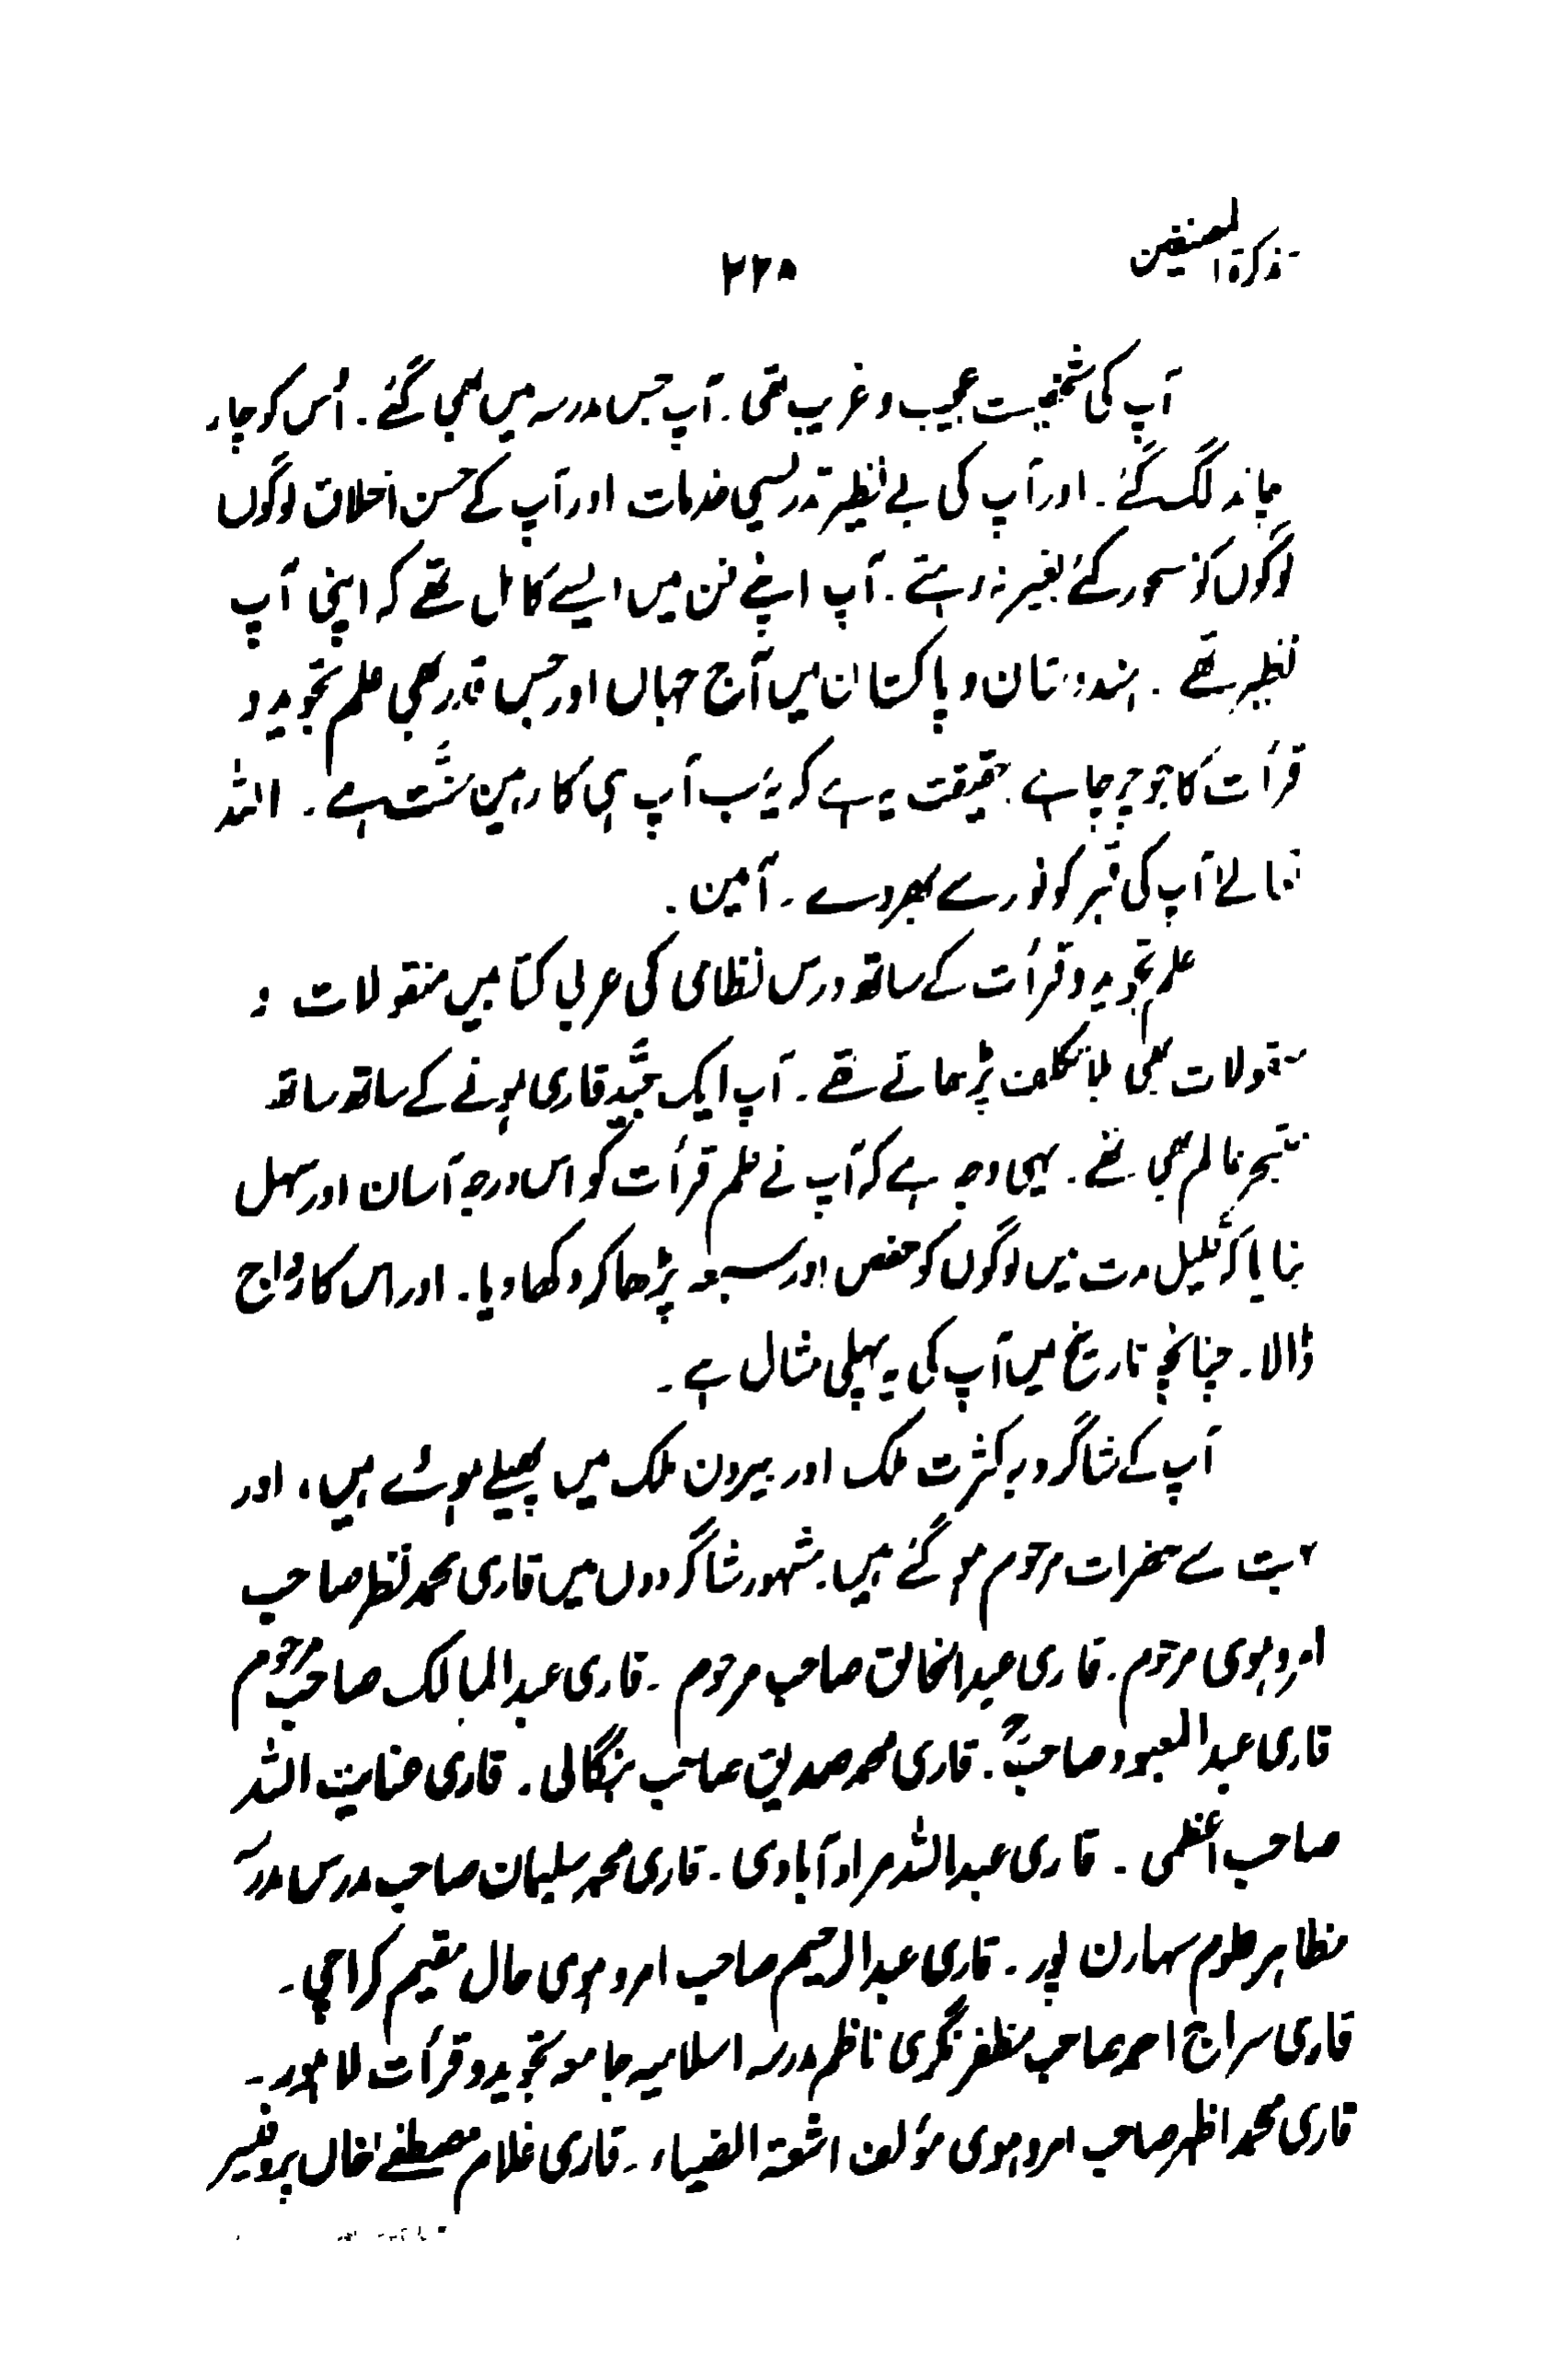 تذکرۃ المصنفین
۲۲۵
آپ کی شخصیت عجیب و غریب تھی۔ آپ جس مدرسہ میں بھی گئے۔ اُس کو چار
چاند لگ گئے۔ اور آپ کی بے نظیر تدریسی خدمات اور آپ کے حسن اخلاق لوگوں
لوگوں کو مسحور کئے بغیر نہ رہتے۔ آپ اپنے فن میں ایسے کامل تھے کہ اپنی آپ
نظیر تھے۔ ہندوستان و پاکستان میں آج جہاں اور جس قدر بھی علم تجوید و
قرأت کا جو چرچا ہے حقیقت یہ ہے کہ یہ سب آپ ہی کا رہین منّت ہے۔ اللہ
تعالےٰ آپ کی قبر کو نور سے بھر دے۔ آمین۔
علم تجوید و قرأت کے ساتھ درس نظامی کی عربی کتابیں منقولات و
معقولات بھی بلا تکلف پڑھاتے تھے۔ آپ ایک جیّد قاری ہونے کے ساتھ ساتھ
متبحر عالم بھی تھے۔ یہی وجہ ہے کہ آپ نے علم قرأت کو اس درجہ آسان اور سہل
بنایا کہ قلیل مدت میں لوگوں کو حفص اور سبعہ پڑھا کر دکھا دیا۔ اور اس کا رواج
ڈالا۔ چنانچہ تاریخ میں آپ کی یہ پہلی مثال ہے۔
آپ کے شاگرد بہ کثرت ملک اور بیرون ملک میں پھیلے ہوئے ہیں، اور
بہت سے حضرات مرحوم ہو گئے ہیں۔ مشہور شاگردوں میں قاری محمد نظر صاحب
امروہوی مرحوم۔ قاری عبدالخالق صاحب مرحوم۔ قاری عبدالمالک صاحب مرحوم
قاری عبدالمعبود صاحبؒ۔ قاری محمد صدیق صاحب بنگالی۔ قاری عنایت اللہ
صاحب اعظمی۔ قاری عبداللہ مراد آبادی۔ قاری محمد سلیمان صاحب مدرس مدرسہ
مظاہر علوم سہارن پور۔ قاری عبدالرحیم صاحب امروہوی حال مقیم کراچی۔
قاری سراج احمد صاحب مظفر نگری ناظم مدرسہ اسلامیہ جامعہ تجوید و قرأت لاہور۔
قاری محمد اظہر صاحب امروہوی مؤلف اشعۃ الضیاء۔ قاری غلام مصطفےٰ خاں پروفیسر